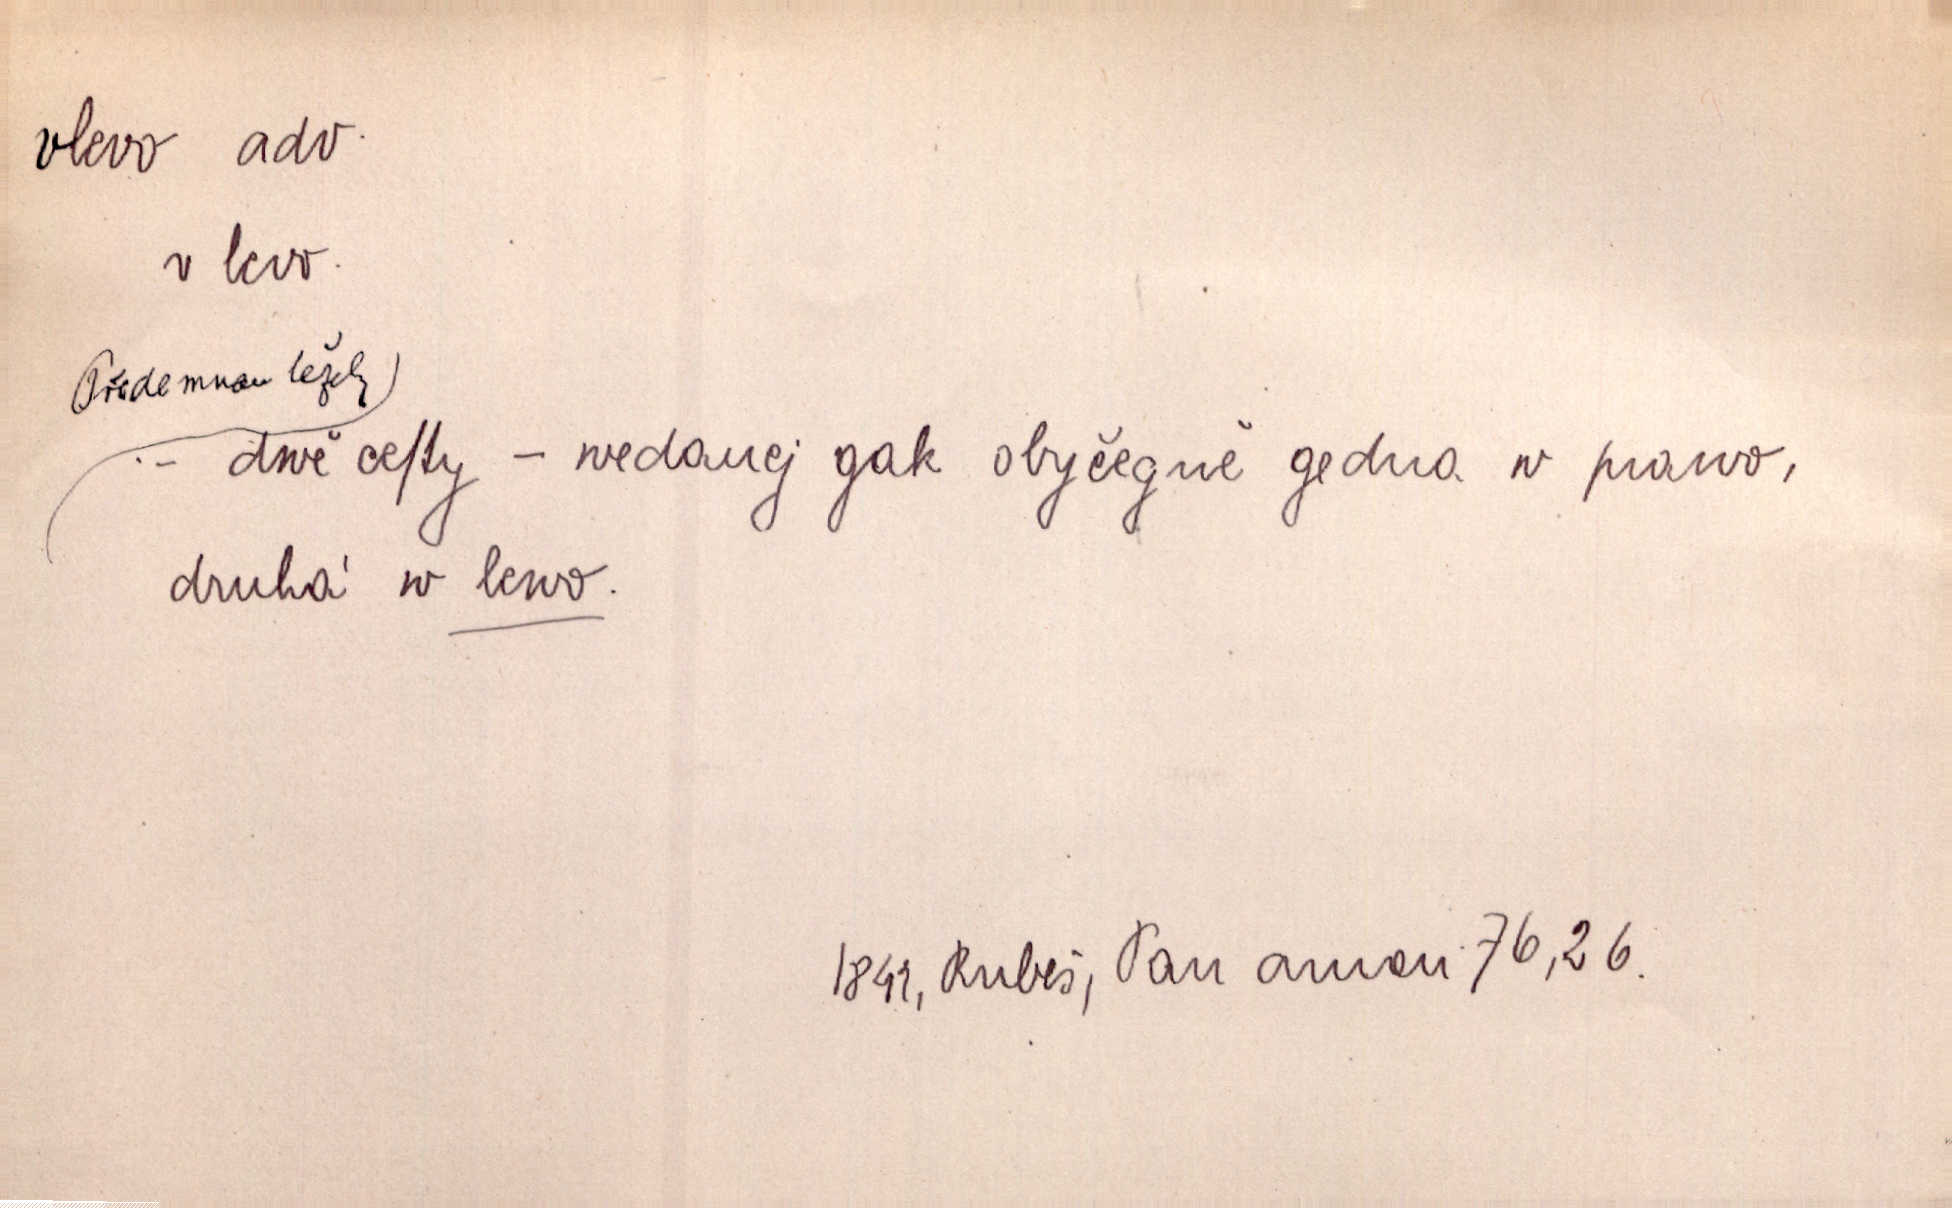 vlevo adv.
v levo.
Přede mnau ležely
- dwě cesty - wedaucj gak obyčegně gedna w prawo,
druhá w lewo.
1841, Rubeš, Pan aman 76,26.